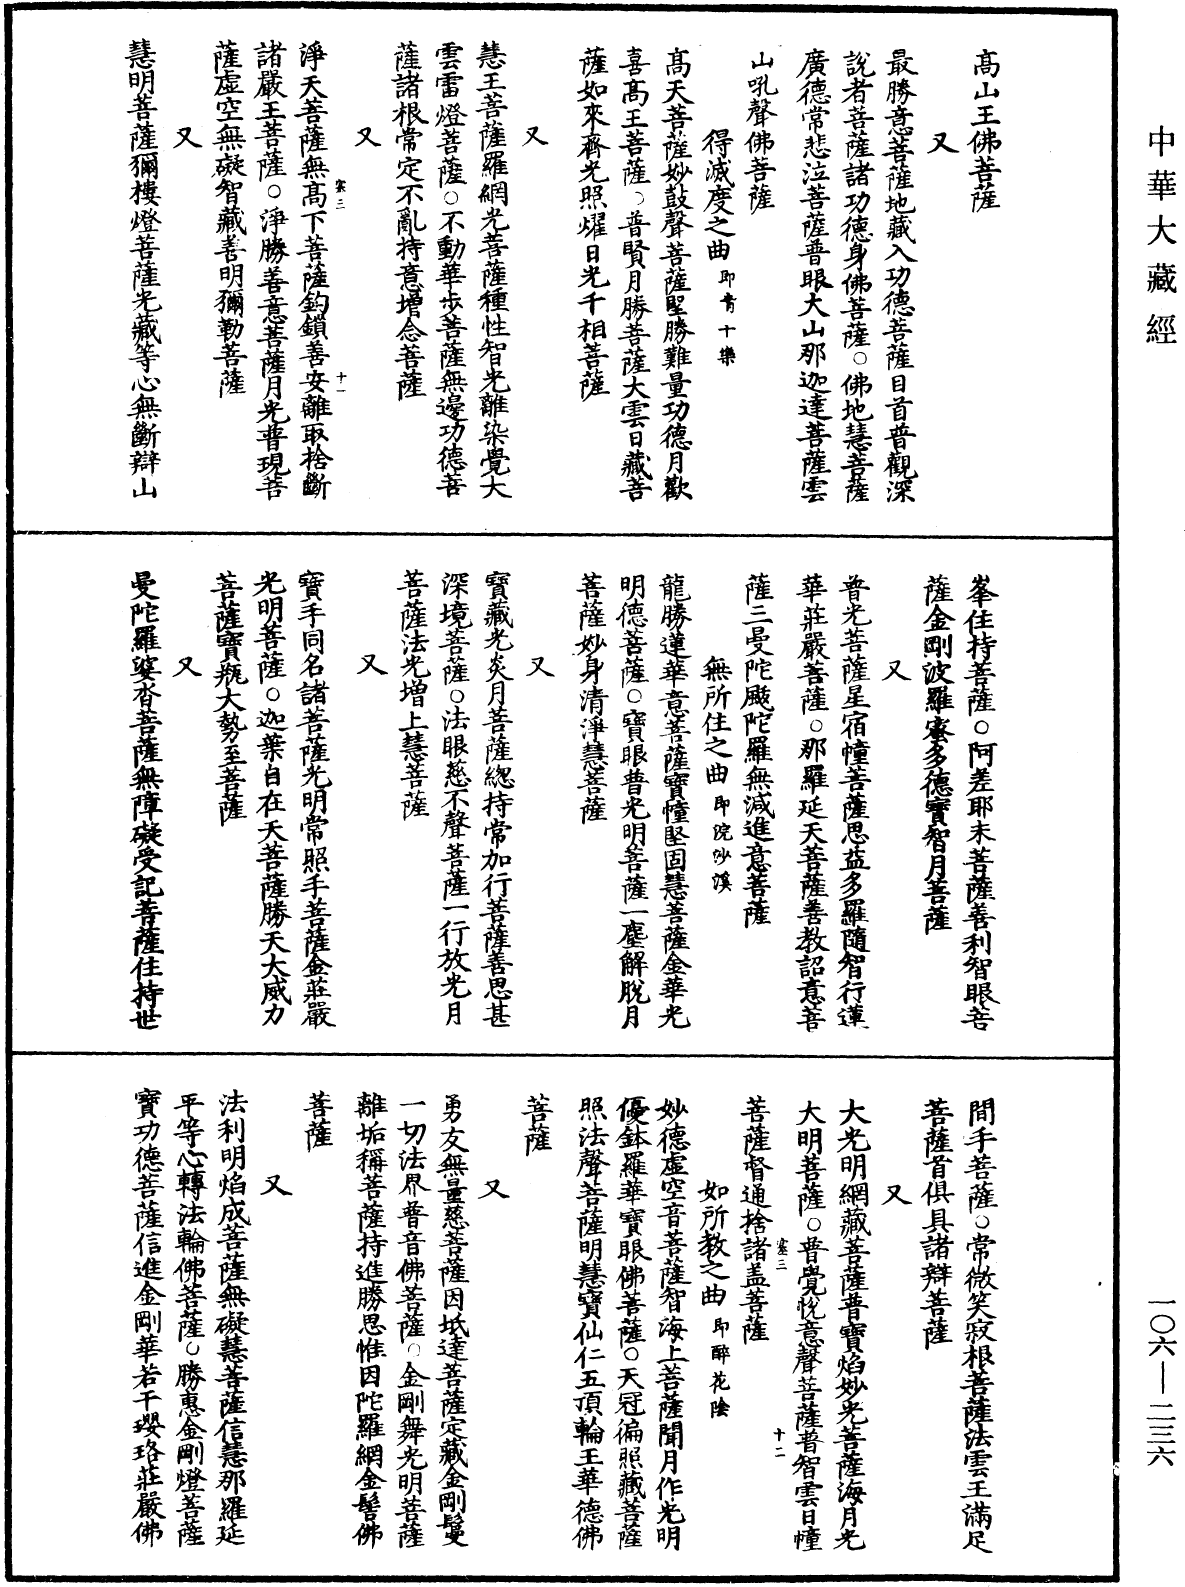 中華大藏經
高山王佛菩薩
又
最勝意菩薩地藏入功德菩薩日首普觀深
說者菩薩諸功德身佛菩薩○佛地慧菩薩
廣德常悲泣菩薩普眼大山那迦達菩薩雲
山吼聲佛菩薩
得滅度之曲即青十樂
高天菩薩妙鼓聲菩薩聖勝難量功德月歡
喜高王菩薩○普賢月勝菩薩大雲日藏菩
薩如來齊光照燿日光千相菩薩
又
慧王菩薩羅網光菩薩種性智光離染覺大
雲雷燈菩薩○不動華步菩薩無邊功德菩
薩諸根常定不亂持意增念菩薩
又
淨天菩薩無高下菩薩鈎鎖善安離取捨斷
諸嚴王菩薩○淨勝善意菩薩月光普現菩
薩虛空無礙智藏善明彌勒菩薩
又
慧明菩薩彌樓燈菩薩光藏等心無斷辯山
峯住持菩薩○阿差耶末菩薩善利智眼菩
薩金剛波羅蜜多德寶智月菩薩
又
普光菩薩星宿幢菩薩思益多羅隨智行蓮
華莊嚴菩薩○那羅延天菩薩善教詔意菩
薩三曼陀颰陀羅無減進意菩薩
無所住之曲即浣沙溪
龍勝蓮華意菩薩寶幢堅固慧菩薩金華光
明德菩薩○寶眼普光明菩薩一塵解脫月
菩薩妙身清淨慧菩薩
又
寶藏光炎月菩薩緫持常加行菩薩善思甚
深境菩薩○法眼慈不聲菩薩一行放光月
菩薩法光增上慧菩薩
又
寶手同名諸菩薩光明常照手菩薩金莊嚴
光明菩薩○迦葉自在天菩薩勝天大威力
菩薩寶瓶大勢至菩薩
又
曼陀羅婆杳菩薩無障礙受記菩薩住持世
間手菩薩○常微笑寂根菩薩法雲王滿足
菩薩首俱具諸辯菩薩
又
大光明網藏菩薩普寶焰妙光菩薩海月光
大明菩薩○普覺悅意聲菩薩普智雲日幢
菩薩督通捨諸盖菩薩
如所教之曲即醉花陰
妙德虛空音菩薩智海上菩薩聞月作光明
優鉢羅華寶眼佛菩薩○天冠徧照藏菩薩
照法聲菩薩明慧寶仙仁五頂輪王華德佛
菩薩
又
勇友無量慈菩薩因坻達菩薩定藏金剛鬘
一切法界普音佛菩薩○金剛舞光明菩薩
離垢稱菩薩持進勝思惟因陀羅網金髻佛
菩薩
又
法利明焰成菩薩無礙慧菩薩信慧那羅延
平等心轉法輪佛菩薩○勝惠金剛燈菩薩
寶功德菩薩信進金剛華若干瓔珞莊嚴佛
一〇六—二三六